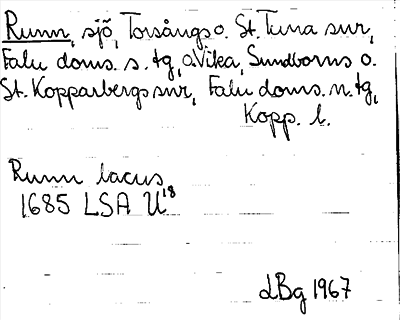 Runn, sjö, Torsångs o. St. Tuna snr,
Falu doms. s. tg, o. Vika, Sundborns o.
St. Kopparbergs snr, Falu doms. n. tg,
Kopp. l.
Runn lacus
1685 LSA U18
dBg 1967